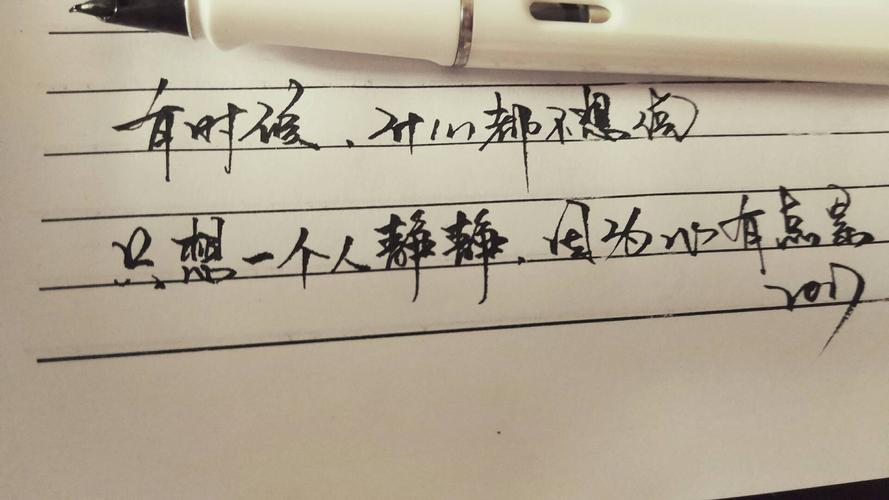 有时候、我们都不想
只想一个人静静、因为心有点累
2017